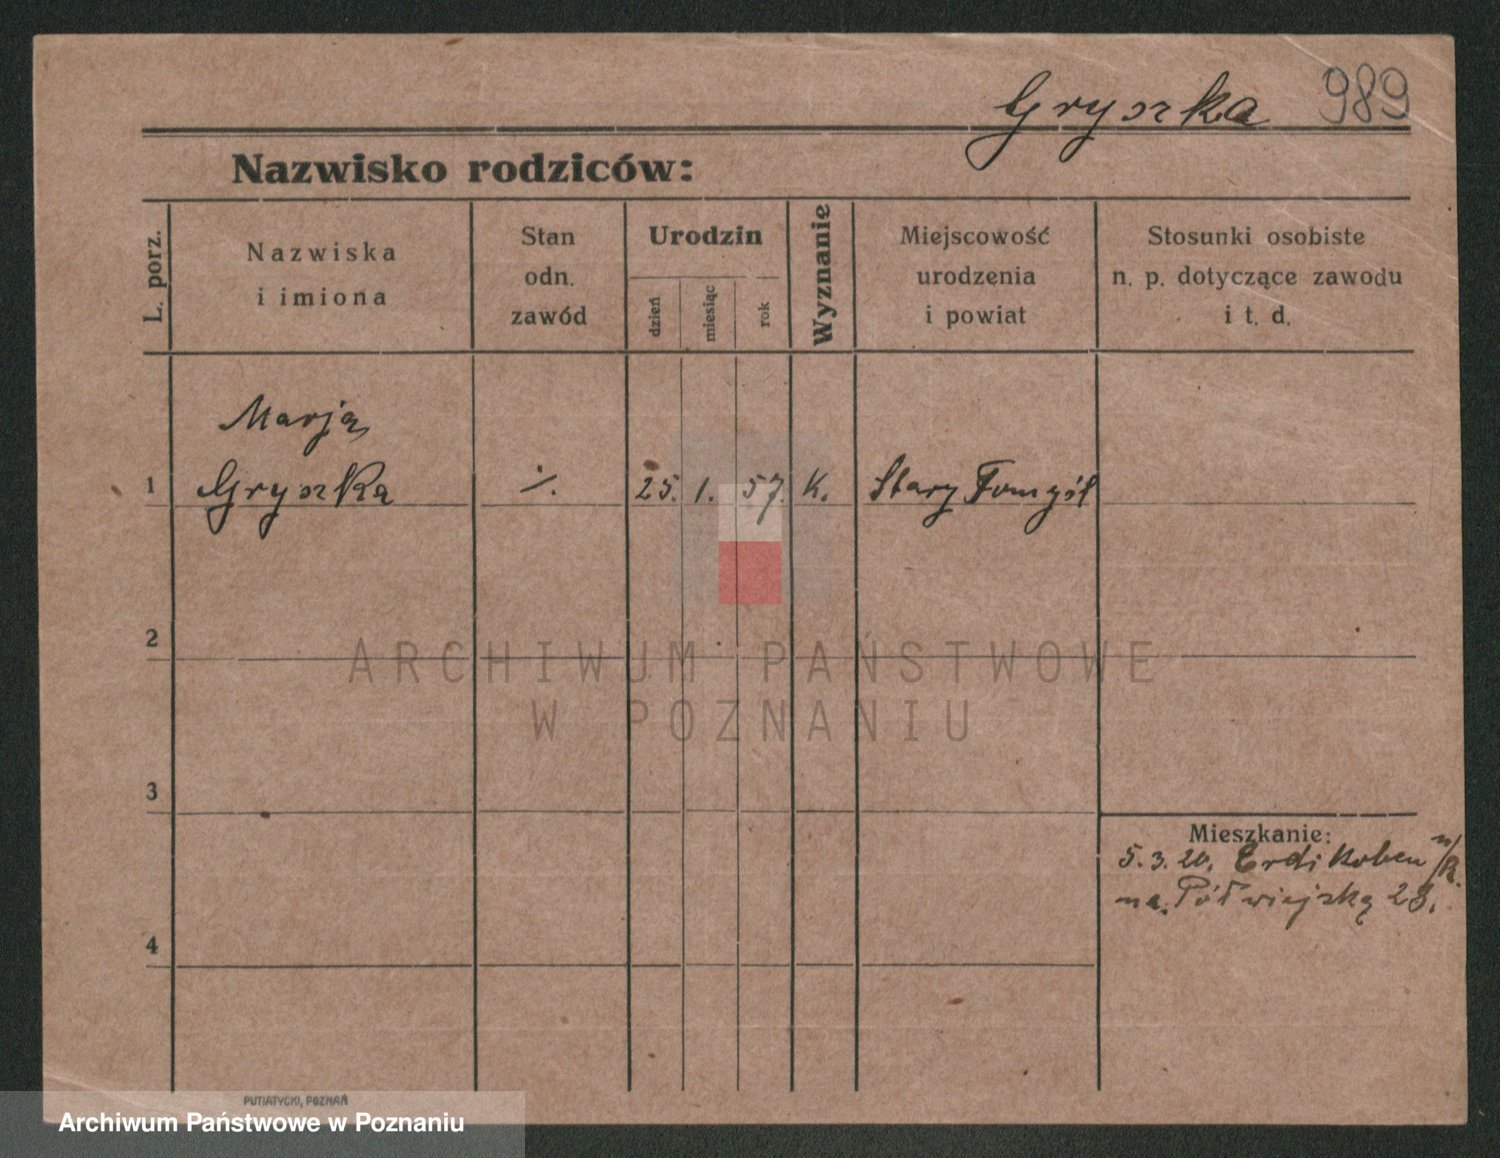 Gryszka 989
Nazwisko rodziców:
L. porz.
Nazwiska
i imiona
Stan
odn.
zawód
Urodzin
dzień
miesiąc
rok
Wyznanie
Miejscowość
urodzenia
i powiat
Stosunki osobiste
n. p. dotyczące zawodu
i t. d.
Marja
1 Gryszka ·/. 25. 1. 57. K. Stary Tomyśl
2
ARCHIWUM PAŃSTWOWE
W POZNANIU
3
Mieszkanie:
5.3.20. n/R.
na. Półwiejską 28.
4
PUTIATYCKI, POZNAŃ
Archiwum Państwowe w Poznaniu